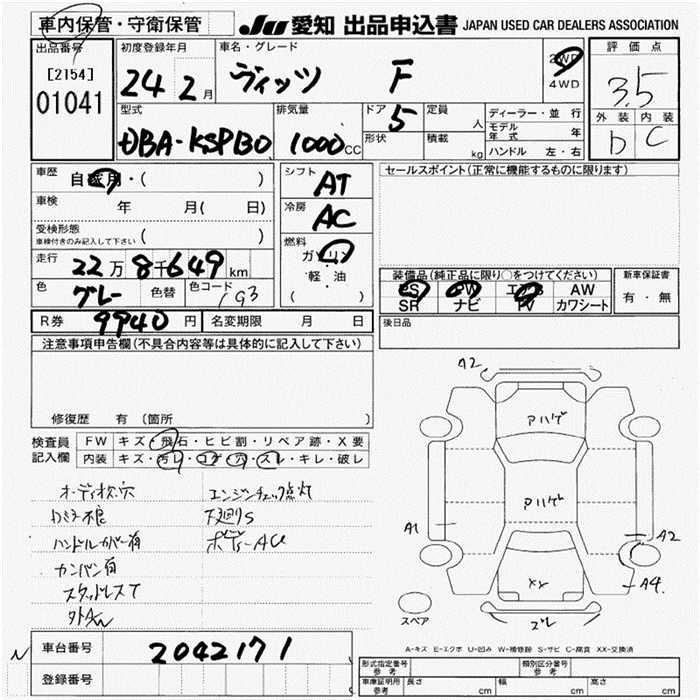 車内保管・守衛保管
JU 愛知 出品申込書 JAPAN USED CAR DEALERS ASSOCIATION
出品番号 [2154] 01041
初度登録年月 24 2月
車名・グレード ヴィッツ F
2WD 4WD
評価点 3.5
外装 内装 D C
型式 DBA-KSP130
排気量 1000cc
ドア 5 形状
定員 人 積載 kg
ディーラー・並行
モデル年式 年
ハンドル 左・右
車歴 自家用・( )
車検 年 月( 日)
受検形態 車検付きのみ記入して下さい ( )
走行 22万8千649km
色 グレー 色替 色コード 1G3
シフト AT
冷房 AC
燃料 ガソリン・軽油 ( )
セールスポイント(正常に機能するものに限ります)
装備品(純正品に限り○をつけてください)
PS PW エアB AW
SR ナビ TV カワシート
新車保証書 有・無
R券 9940円 名変期限 月 日
後日品
注意事項申告欄(不具合内容等は具体的に記入して下さい)
修復歴 有 (箇所
検査員記入欄
FW キズ・飛石・ヒビ割・リペア跡・X要
内装 キズ・汚レ・コゲ・穴・スレ・キレ・破レ
オーディオ欠.穴 エンジンチェック点灯
カミラー不良 下廻りS
ハンドルカバー有 ボディーAU
カンバン有
スタッドレスT
外AW
A2
アハゲ
アハゲ
A1
A2
A4
XX
スレ
スペア
A-キズ E-エクボ U-凹み W-補修跡 S-サビ C-腐食 XX-交換済
N 車台番号 2042171
登録番号
形式指定番号 参考 類別区分番号 参考
車庫証明用 参考 長さ cm 幅 cm 高さ cm